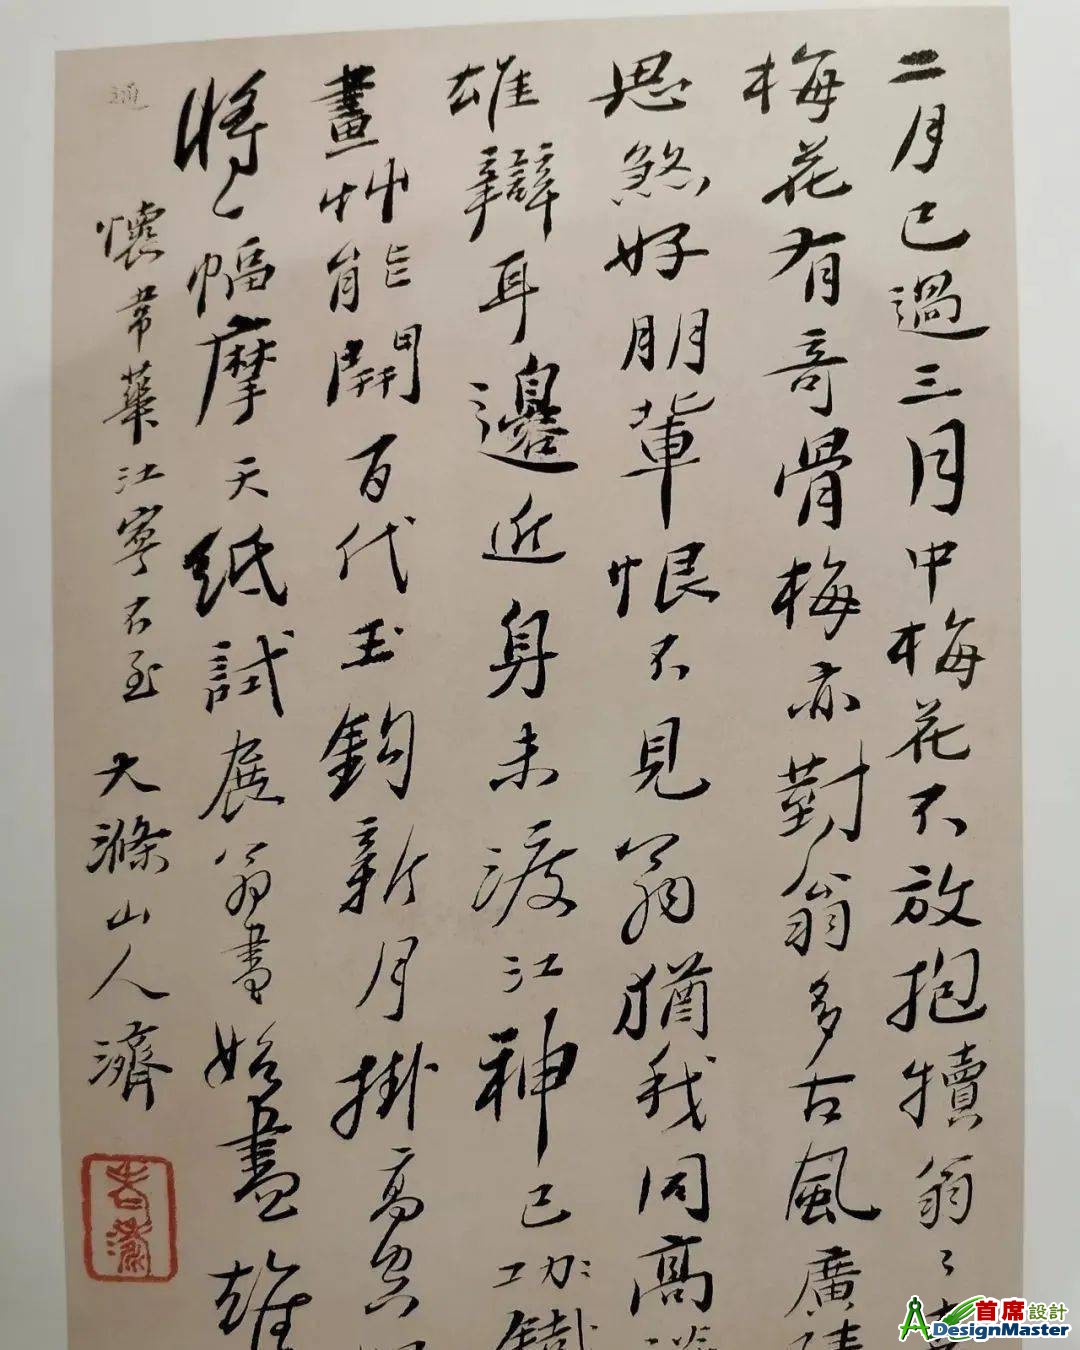 二月已過三月中梅花不放抱犢翁〻
梅花有奇骨梅亦對翁多古風廣陵
思煞好朋輩恨不見翁猶我同高
雄辯耳邊近身未渡江神已功鐵
畫艸能開百代玉鉤新月掛高
將〻幅摩天紙試展翁書始盡雄
懷韋華江寧不至 大滌山人濟
首席設計
ADesignMaster